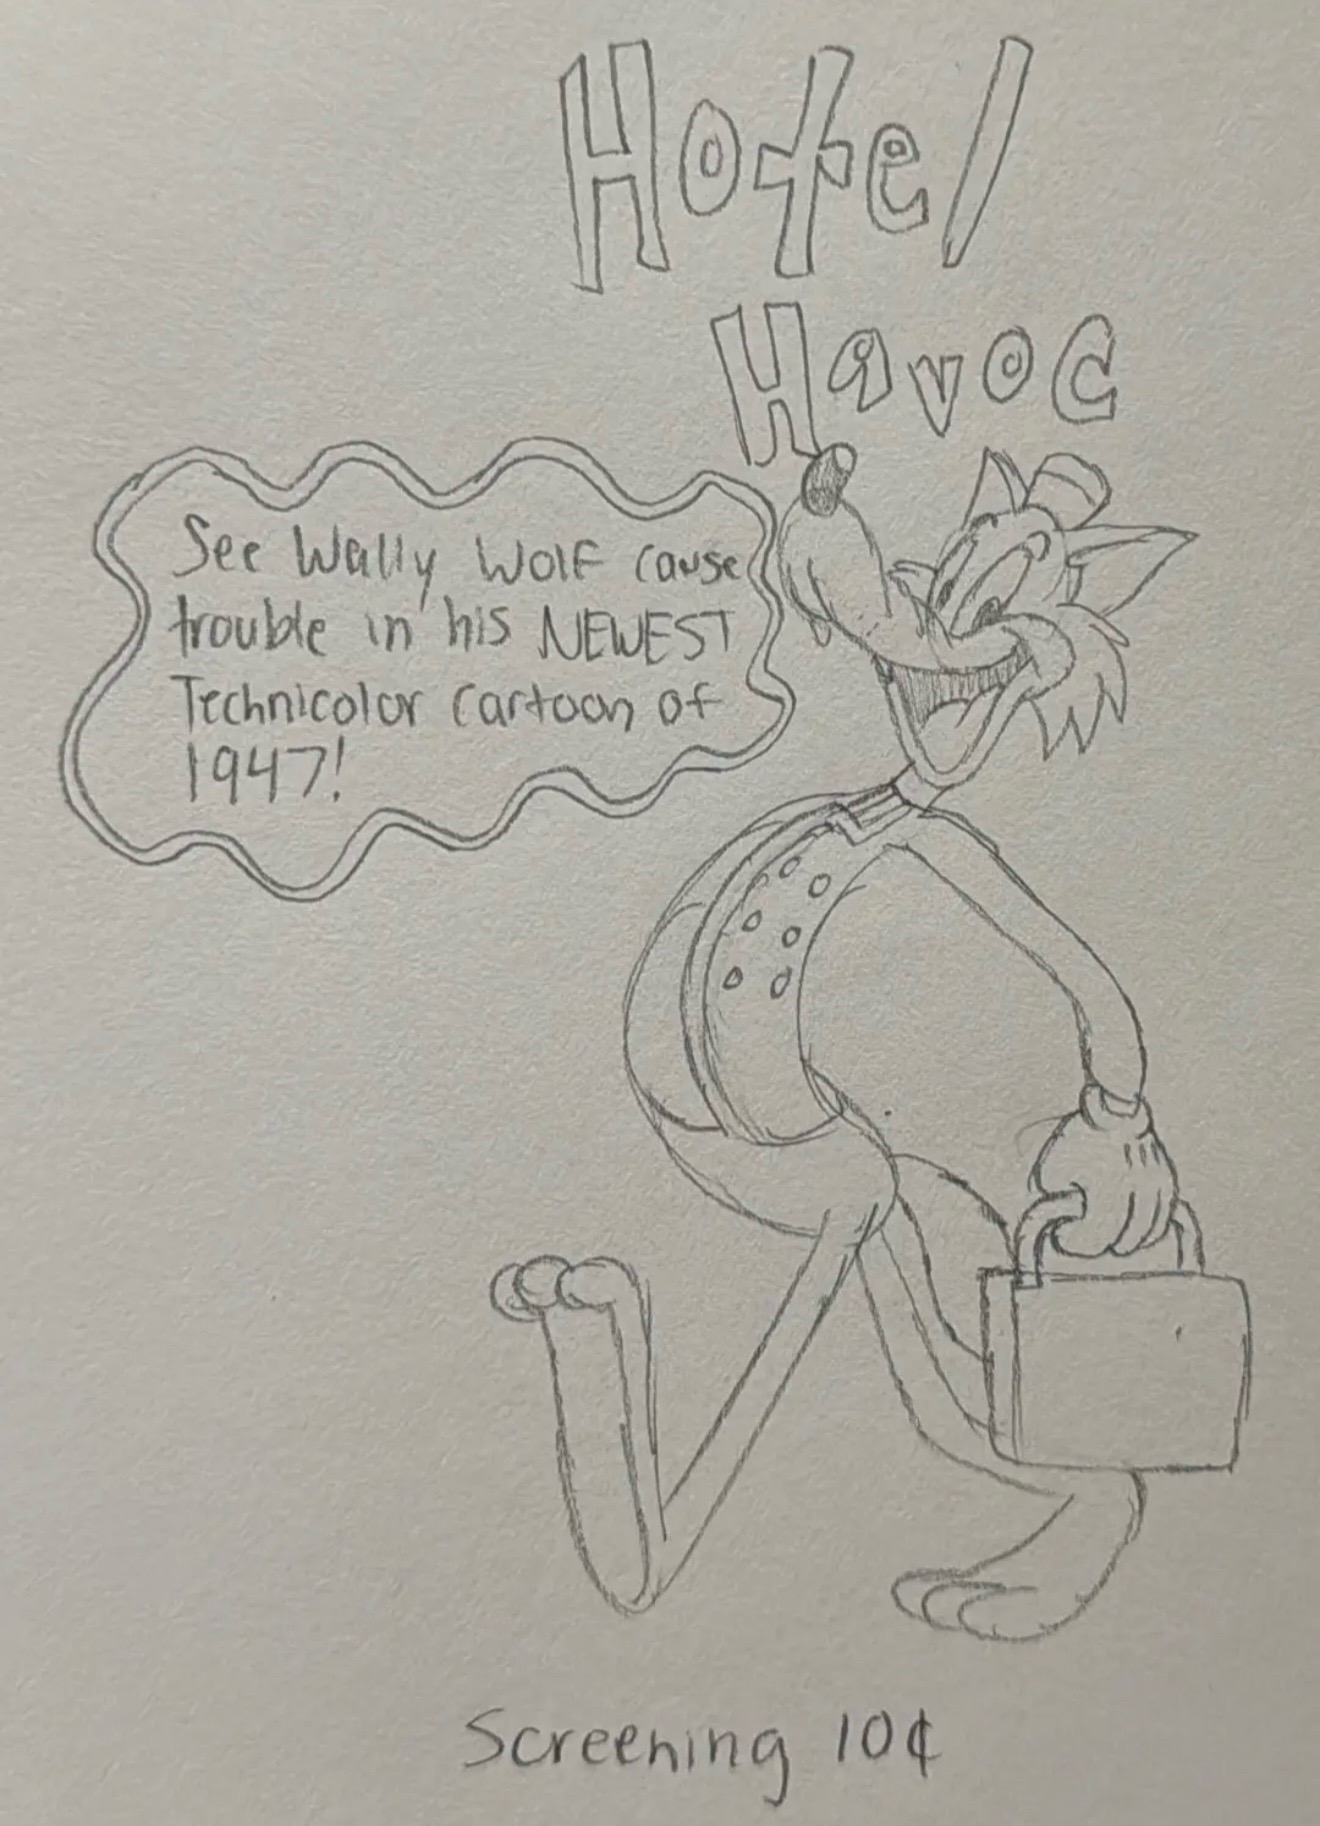 Hotel
Havoc
See Wally Wolf cause
trouble in his NEWEST
Technicolor cartoon of
1947!
Screening 10¢